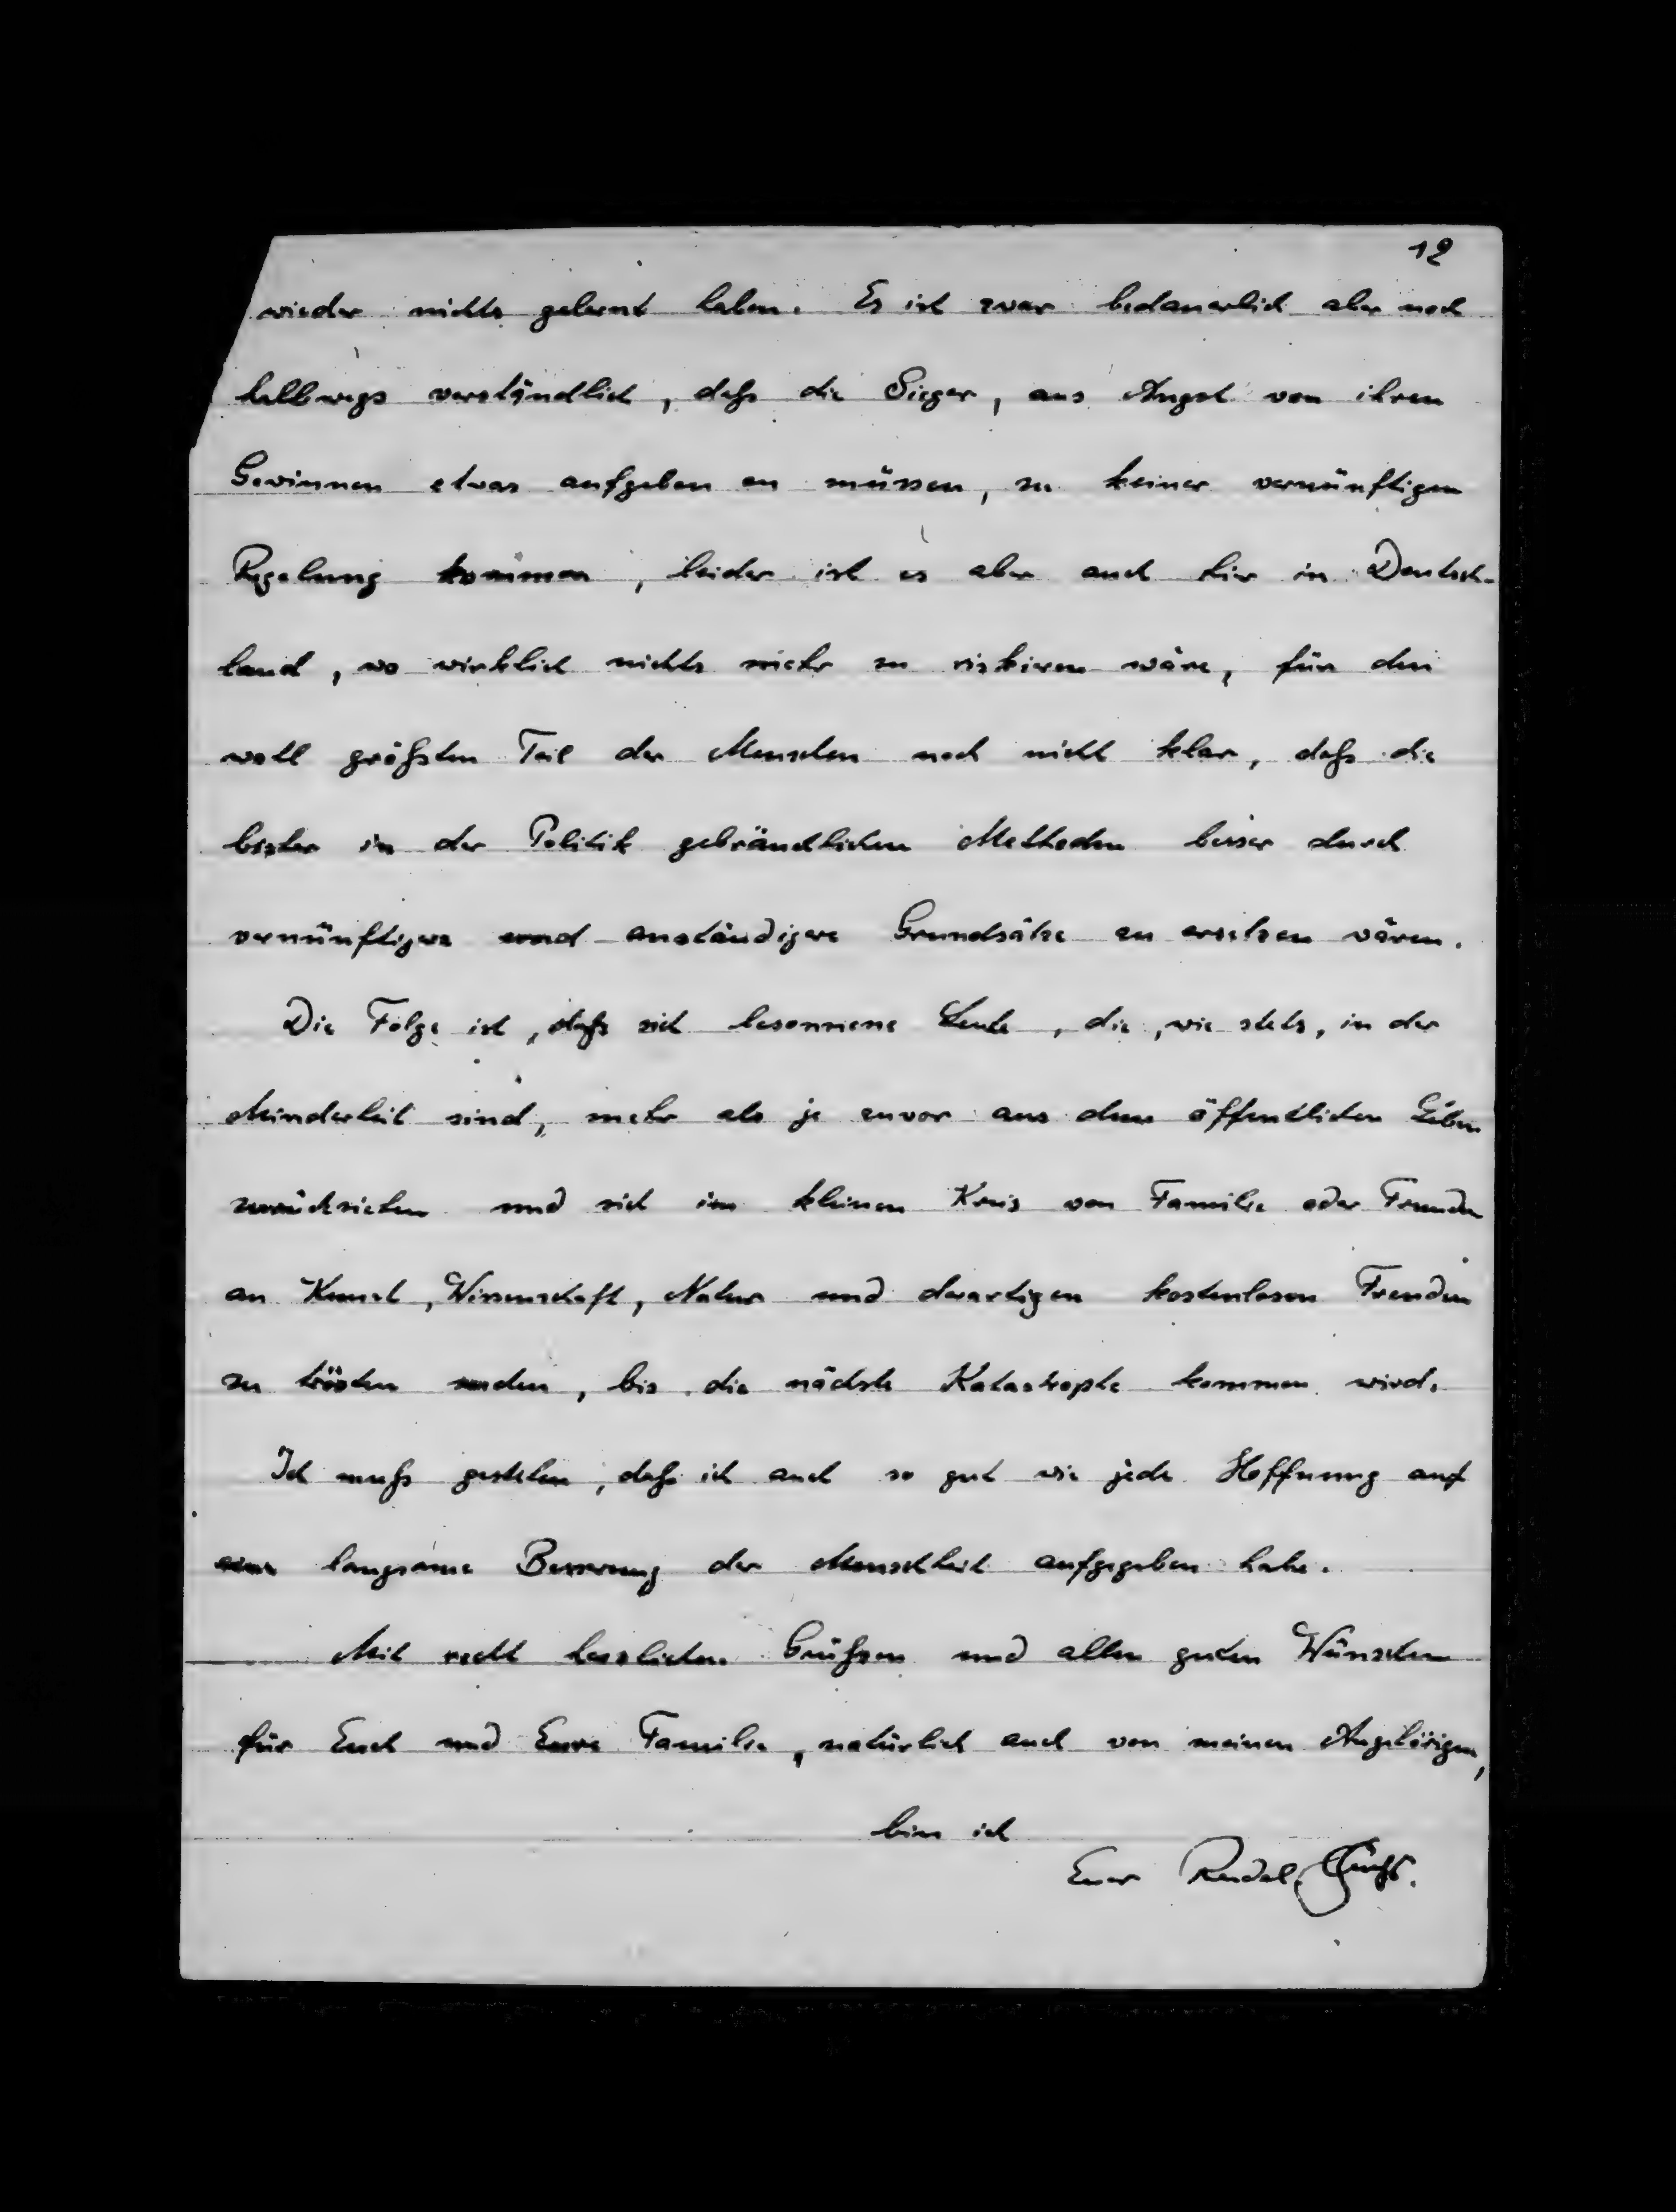 12
wieder nichts gelernt haben. Es ist zwar bedauerlich aber noch
halbwegs verständlich, daß die Sieger, aus Angst von ihren
Gewinnen etwas aufgeben zu müssen, zu keiner vernünftigen
Regelung kommen, leider ist es aber auch hier in Deutsch-
land, wo wirklich nichts mehr zu riskieren wäre, für den
wohl größten Teil der Menschen noch nicht klar, daß die
bisher in der Politik gebräuchlichen Methoden besser durch
vernünftigere und anständigere Grundsätze zu ersetzen wären.
Die Folge ist, daß sich besonnene Leute, die, wie stets, in der
Minderheit sind, mehr als je zuvor aus dem öffentlichen Leben
zurückziehen und sich im kleinen Kreis von Familie oder Freunden
an Kunst, Wissenschaft, Natur und derartigen kostenlosen Freuden
zu trösten suchen, bis die nächste Katastrophe kommen wird.
Ich muß gestehen, daß ich auch so gut wie jede Hoffnung auf
eine langsame Besserung der Menschheit aufgegeben habe.
Mit recht herzlichen Grüßen und allen guten Wünschen
für Euch und Eure Familie, natürlich auch von meinen Angehörigen,
bin ich
Euer